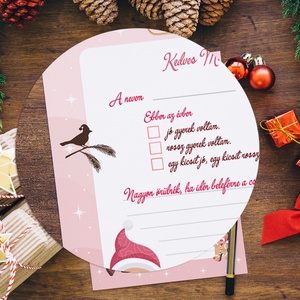 Kedves M
A nevem
Ebben az évben
jó gyerek voltam.
rossz gyerek voltam.
egy kicsit jó, egy kicsit rossz
Nagyon örülnék, ha idén beleférne a cs